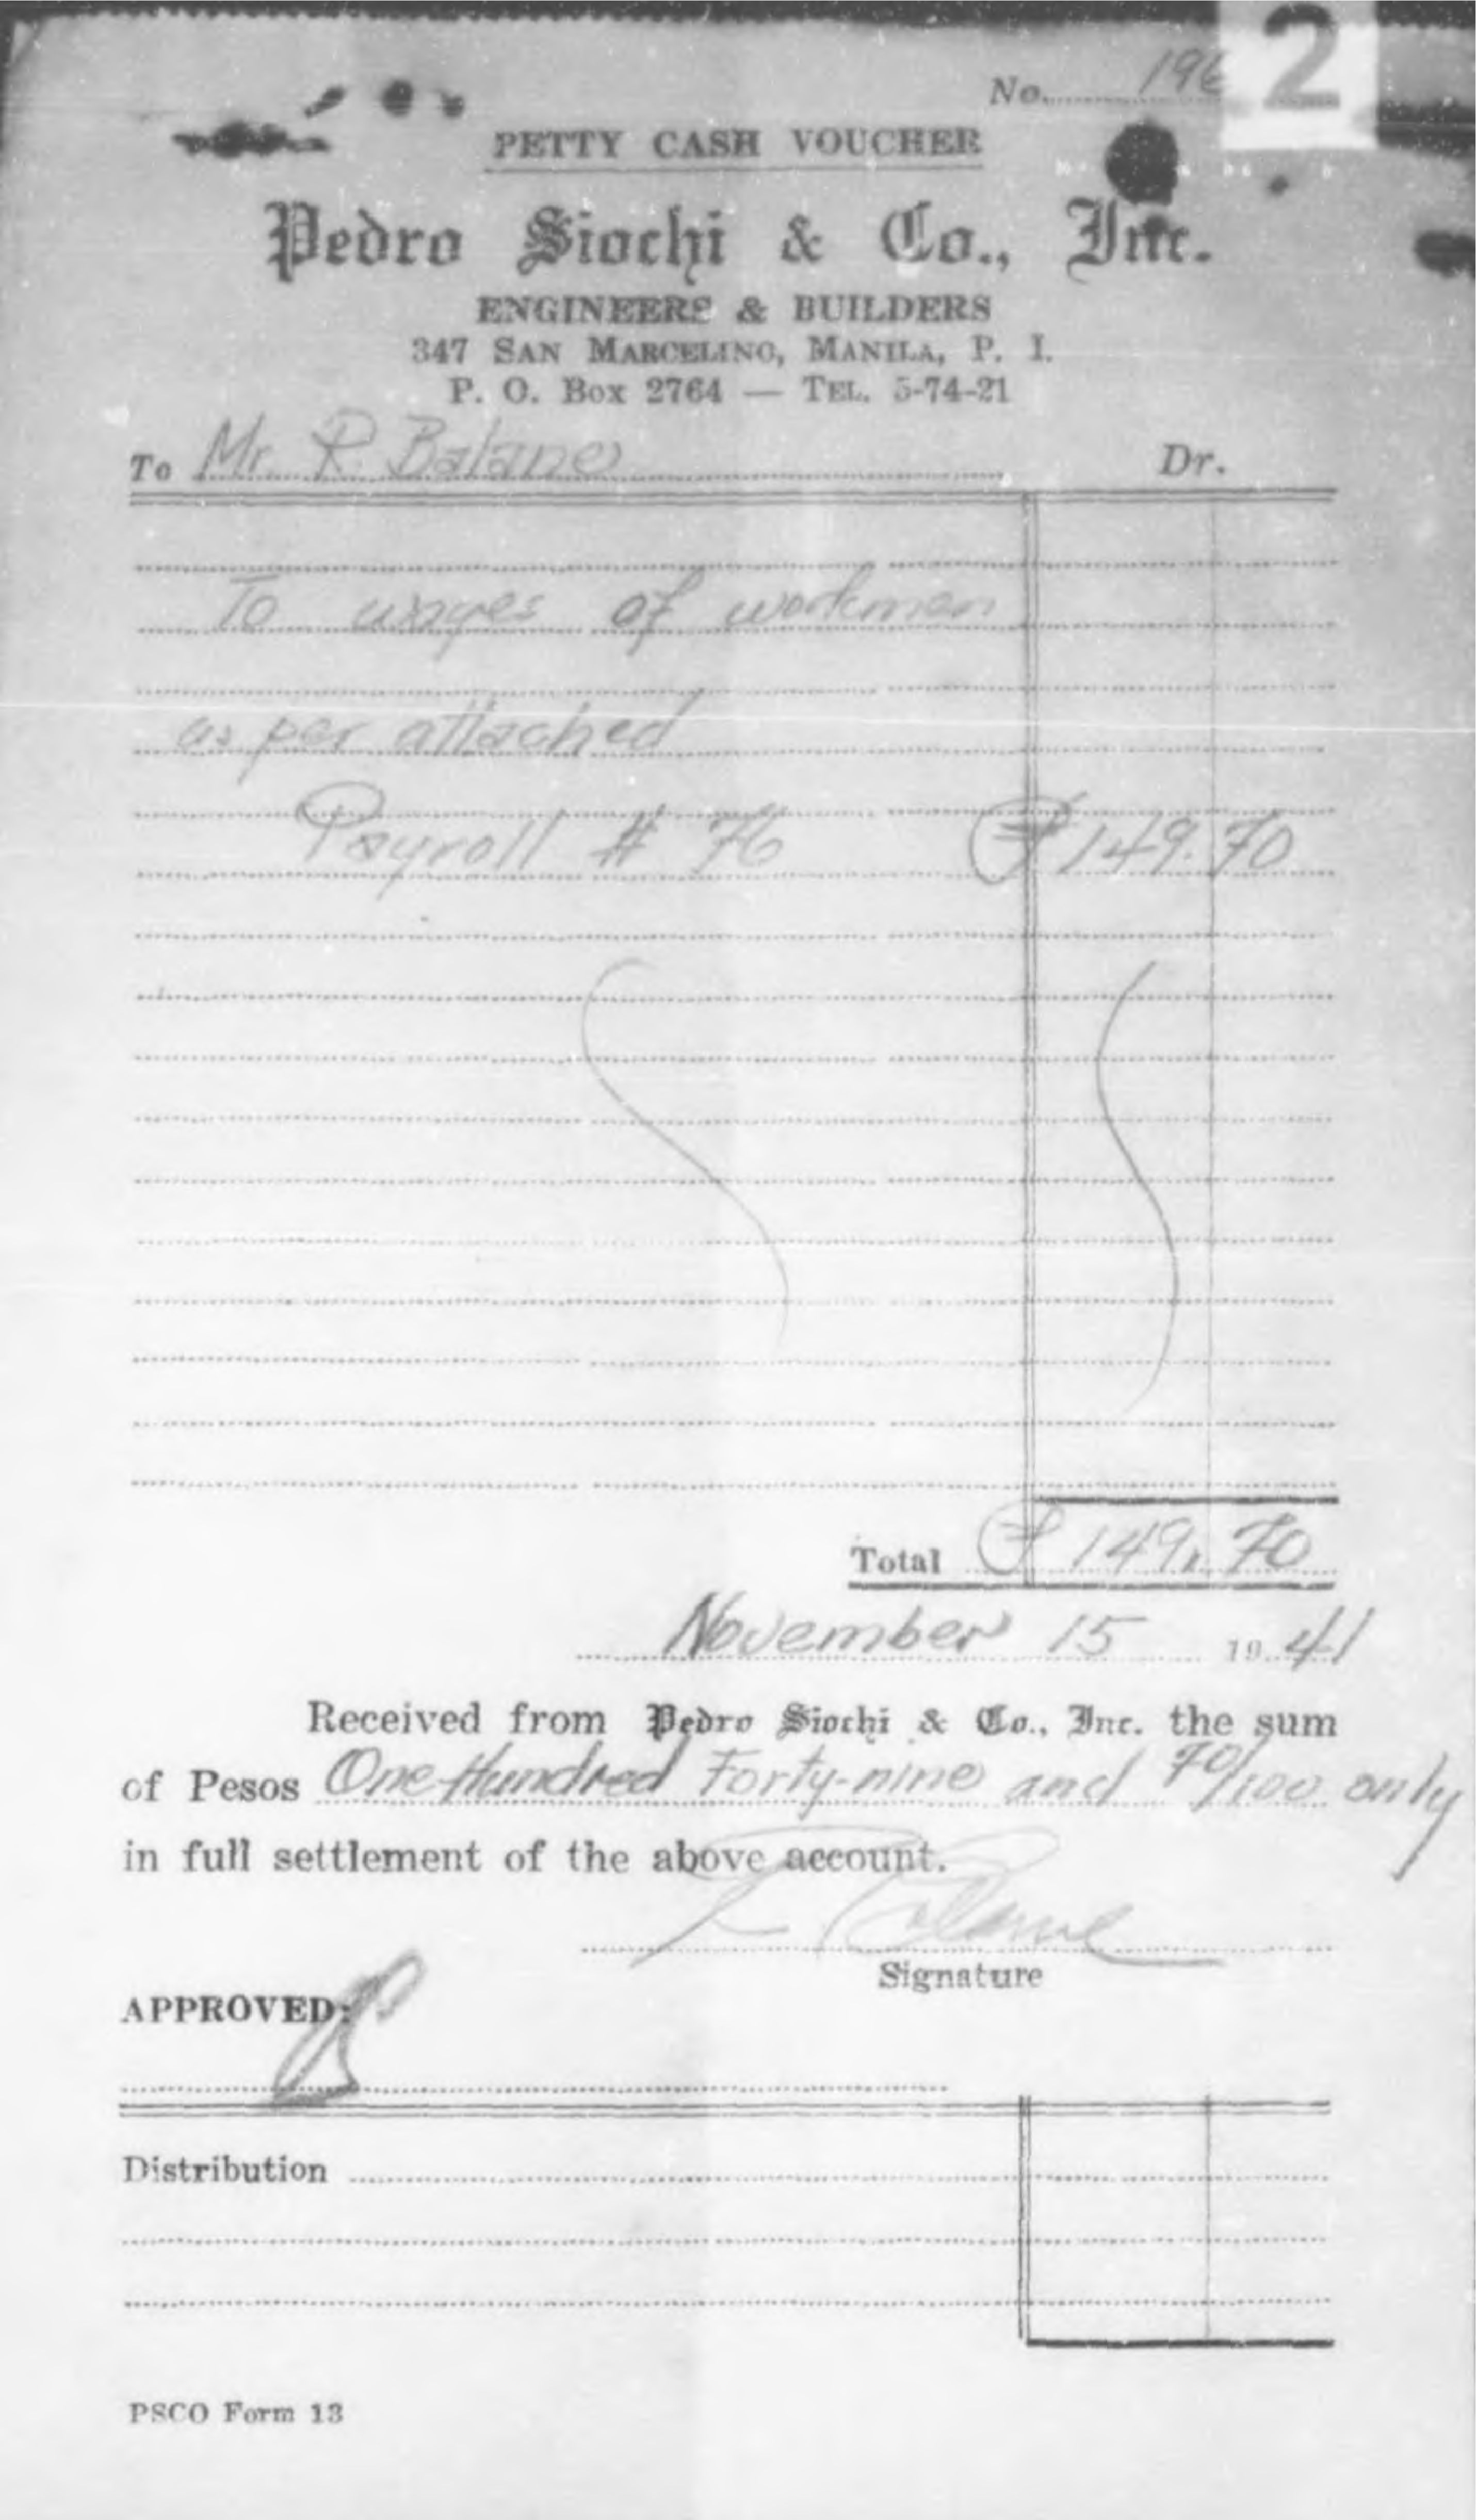 2
No. 196
PETTY CASH VOUCHER
Pedro Siochi & Co., Inc.
ENGINEERS & BUILDERS
347 SAN MARCELINO, MANILA, P. I.
P. O. Box 2764 — TEL. 5-74-21
To Mr. R. Balane Dr.
To wages of workmen
as per attached
Payroll # 76 ₱149.70
Total ₱149.70
November 15 1941
Received from Pedro Siochi & Co., Inc. the sum
of Pesos One Hundred Forty-nine and 70/100 only
in full settlement of the above account.
Signature
APPROVED:
Distribution
PSCO Form 13